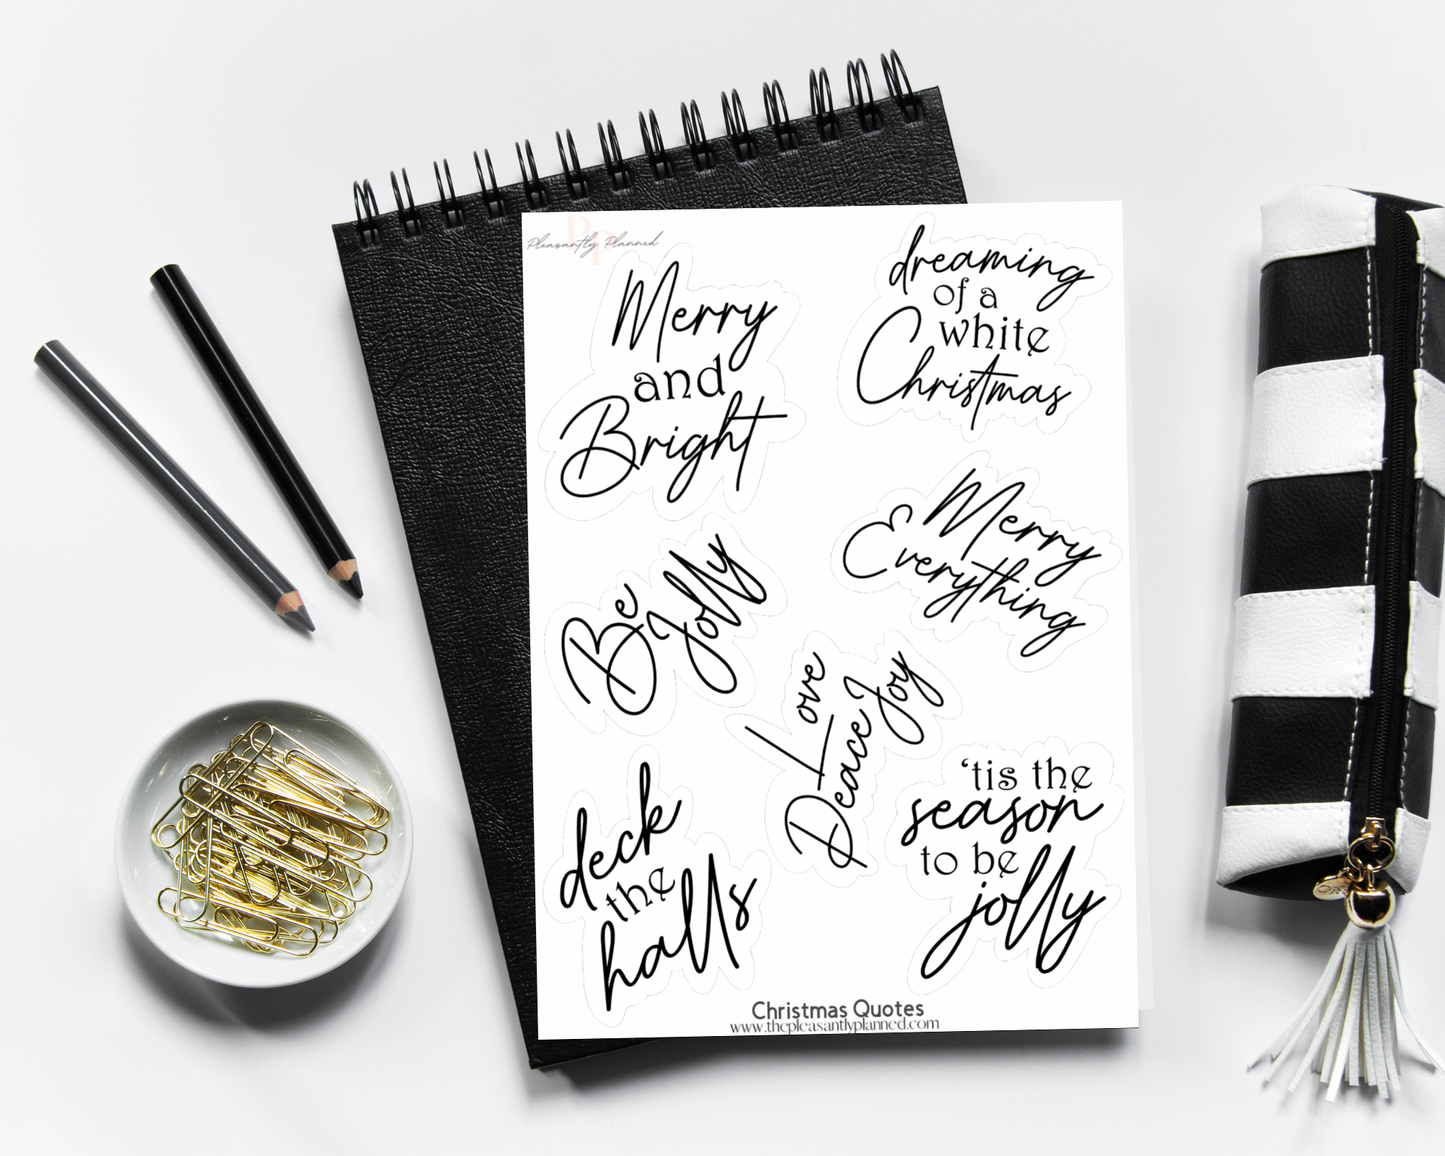 PP
Pleasantly Planned
Merry
and
Bright
dreaming
of a
white
Christmas
Merry
Everything
Be
Jolly
Love
Peace Joy
deck
the
halls
‘tis the
season
to be
jolly
Christmas Quotes
www.thepleasantlyplanned.com